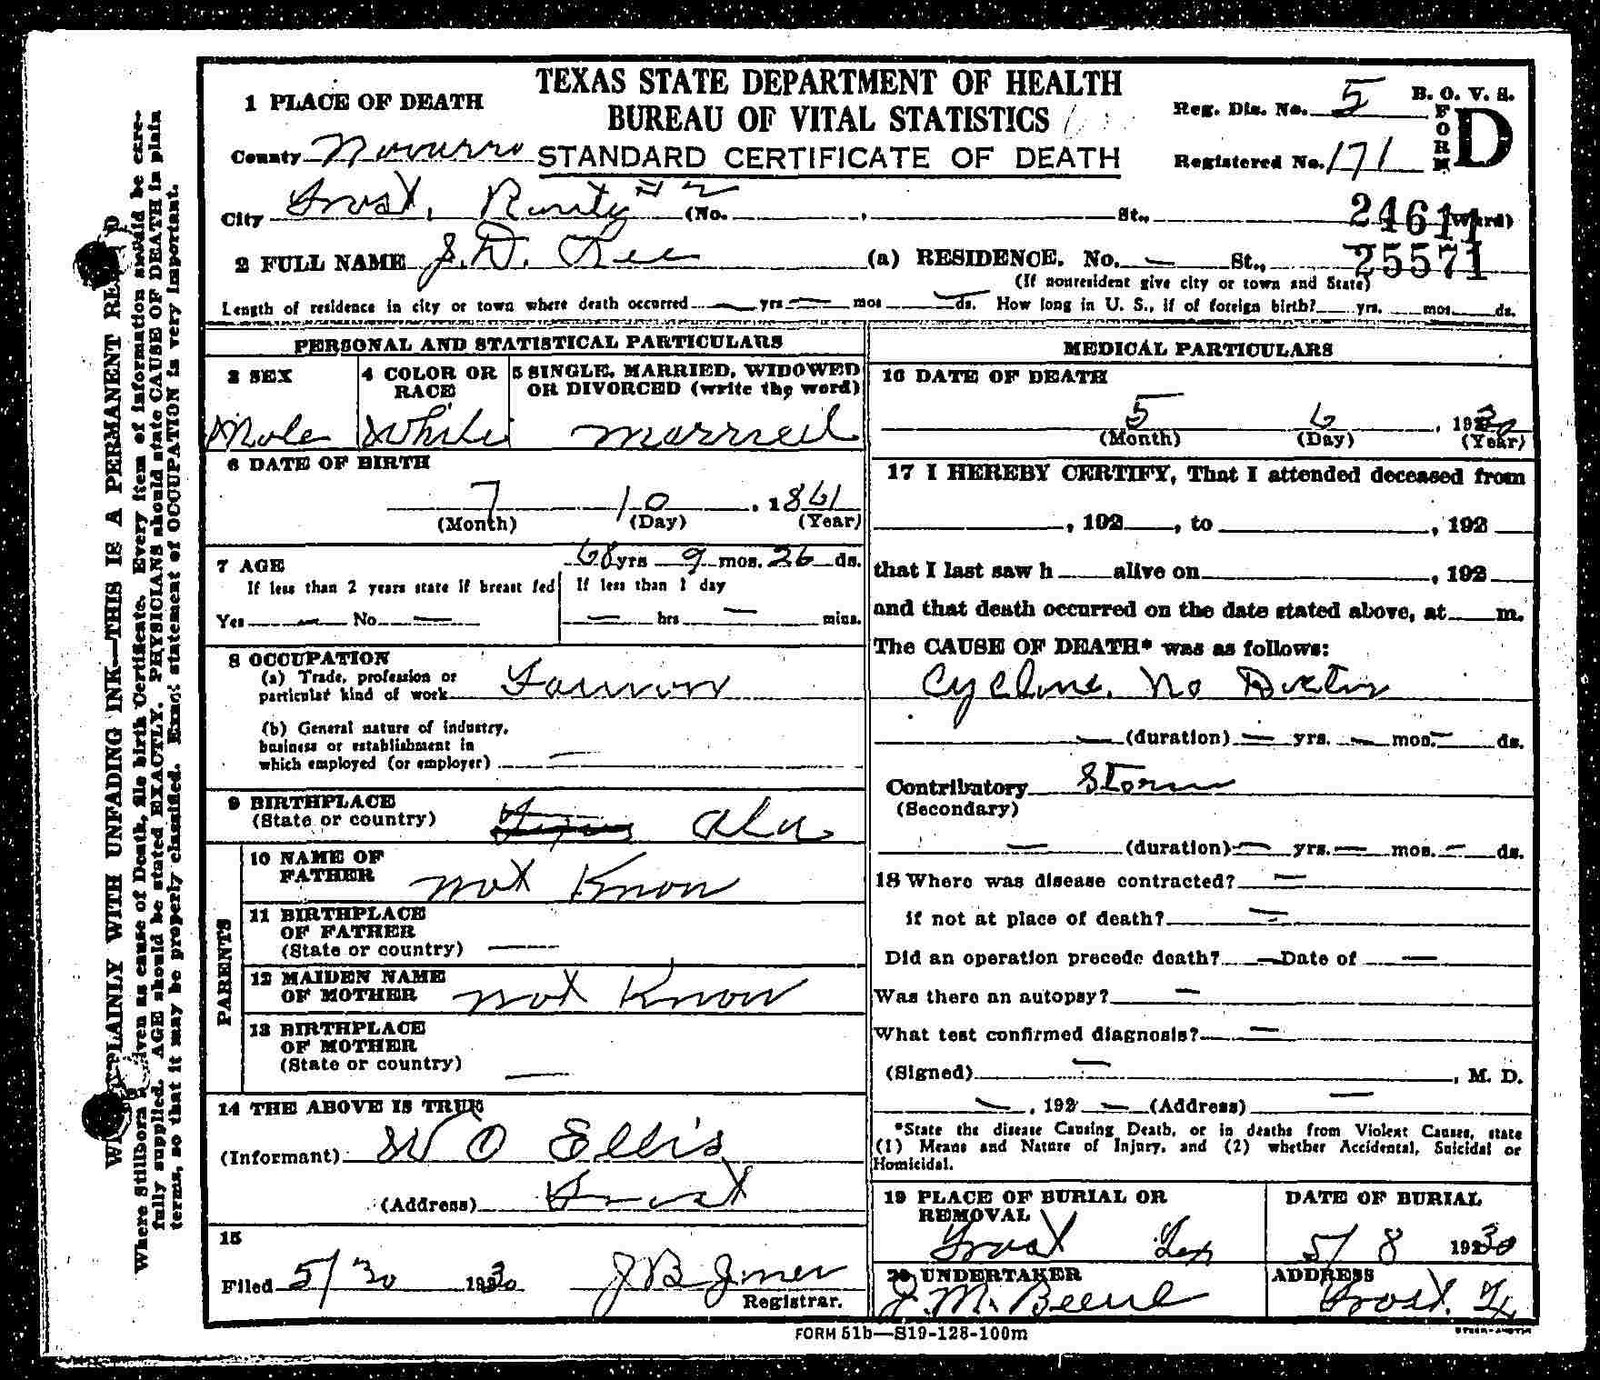 TEXAS STATE DEPARTMENT OF HEALTH
BUREAU OF VITAL STATISTICS
STANDARD CERTIFICATE OF DEATH
B. O. V. S.
FORM D
Reg. Dis. No. 5
Registered No. 171
24611
25571
1 PLACE OF DEATH
County Navarro
City Frost, Route #2 (No. , St., Ward)
2 FULL NAME J. D. Lee (a) RESIDENCE. No. — St.,
(If nonresident give city or town and State)
Length of residence in city or town where death occurred — yrs — mos — ds. How long in U. S., if of foreign birth? yrs. mos. ds.
PERSONAL AND STATISTICAL PARTICULARS
3 SEX
Male
4 COLOR OR RACE
White
5 SINGLE, MARRIED, WIDOWED
OR DIVORCED (write the word)
married
6 DATE OF BIRTH
7 10 , 1861
(Month) (Day) (Year)
7 AGE 68 yrs 9 mos. 26 ds.
If less than 2 years state if breast fed
Yes — No —
If less than 1 day
— hrs — mins.
8 OCCUPATION
(a) Trade, profession or
particular kind of work Farmer
(b) General nature of industry,
business or establishment in
which employed (or employer) —
9 BIRTHPLACE
(State or country) Texas Ala
PARENTS
10 NAME OF
FATHER not Know
11 BIRTHPLACE
OF FATHER
(State or country) —
12 MAIDEN NAME
OF MOTHER not Know
13 BIRTHPLACE
OF MOTHER
(State or country) —
14 THE ABOVE IS TRUE
(Informant) W O Ellis
(Address) Frost
15
Filed 5/30 1930 J B Jones
Registrar.
MEDICAL PARTICULARS
16 DATE OF DEATH
5 6 , 1930
(Month) (Day) (Year)
17 I HEREBY CERTIFY, That I attended deceased from
, 192 , to , 192
that I last saw h alive on , 192
and that death occurred on the date stated above, at m.
The CAUSE OF DEATH* was as follows:
Cyclone. No Doctor
— (duration) — yrs. — mos. — ds.
Contributory Storm
(Secondary)
— (duration) — yrs. — mos. — ds.
18 Where was disease contracted? —
if not at place of death? —
Did an operation precede death? — Date of —
Was there an autopsy? —
What test confirmed diagnosis? —
(Signed) — , M. D.
— , 192 — (Address) —
*State the disease Causing Death, or in deaths from Violent Causes, state
(1) Means and Nature of Injury, and (2) whether Accidental, Suicidal or
Homicidal.
19 PLACE OF BURIAL OR
REMOVAL
Frost Tex
DATE OF BURIAL
5/ 8 1930
20 UNDERTAKER
J. M.
ADDRESS
Frost. Tx
FORM 51b—S19-128-100m
PLAINLY WITH UNFADING INK—THIS IS A PERMANENT
Where Stillborn given as cause of Death, file birth Certificate. Every item of information should be care-
fully supplied. AGE should be stated EXACTLY. PHYSICIANS should state CAUSE OF DEATH in plain
terms, so that it may be properly classified. Exact statement of OCCUPATION is very important.